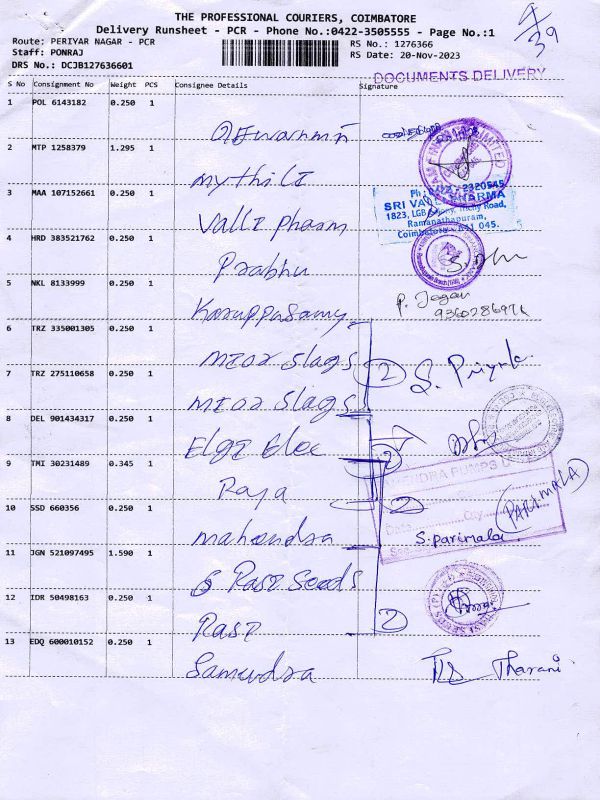 THE PROFESSIONAL COURIERS, COIMBATORE
Delivery Runsheet - PCR - Phone No.:0422-3505555 - Page No.:1
Route: PERIYAR NAGAR - PCR
RS No.: 1276366
Staff: PONRAJ
RS Date: 20-Nov-2023
DRS No.: DCJB127636601
DOCUMENTS DELIVERY
S No Consignment No Weight PCS Consignee Details Signature
1 POL 6143182 0.250 1
2 MTP 1258379 1.295 1
mythili
3 MAA 107152661 0.250 1
Valli pharm
SRI VALLI PHARMA
1823, LGB Colony, Trichy Road,
Ramanathapuram,
Coimbatore - 641 045.
4 HRD 383521762 0.250 1
Prabhu
5 NKL 8133999 0.250 1
Karuppasamy
P. Jegan
6 TRZ 335001305 0.250 1
slags
2 S. Priyanka
7 TRZ 275110658 0.250 1
slags
8 DEL 901434317 0.250 1
Elgi Elec
2
9 TMI 30231489 0.345 1
Raja
PUMPS
10 SSD 660356 0.250 1
mahendra
2 S. parimala
PARIMALA
11 JGN 521097495 1.590 1
Rasi Seeds
12 IDR 50498163 0.250 1
Rasi
2
13 EDQ 600010152 0.250 1
Samudra
Tharani